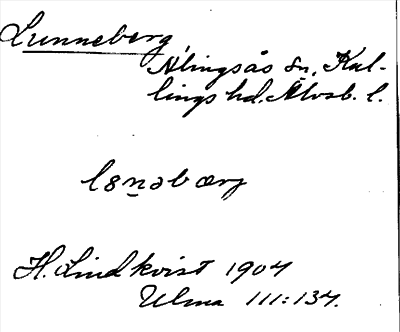 Lunneberg
Alingsås sn, Kul-
lings hd. Älvsb. l.
H. Lindkvist 1904
Ulma 111:134.